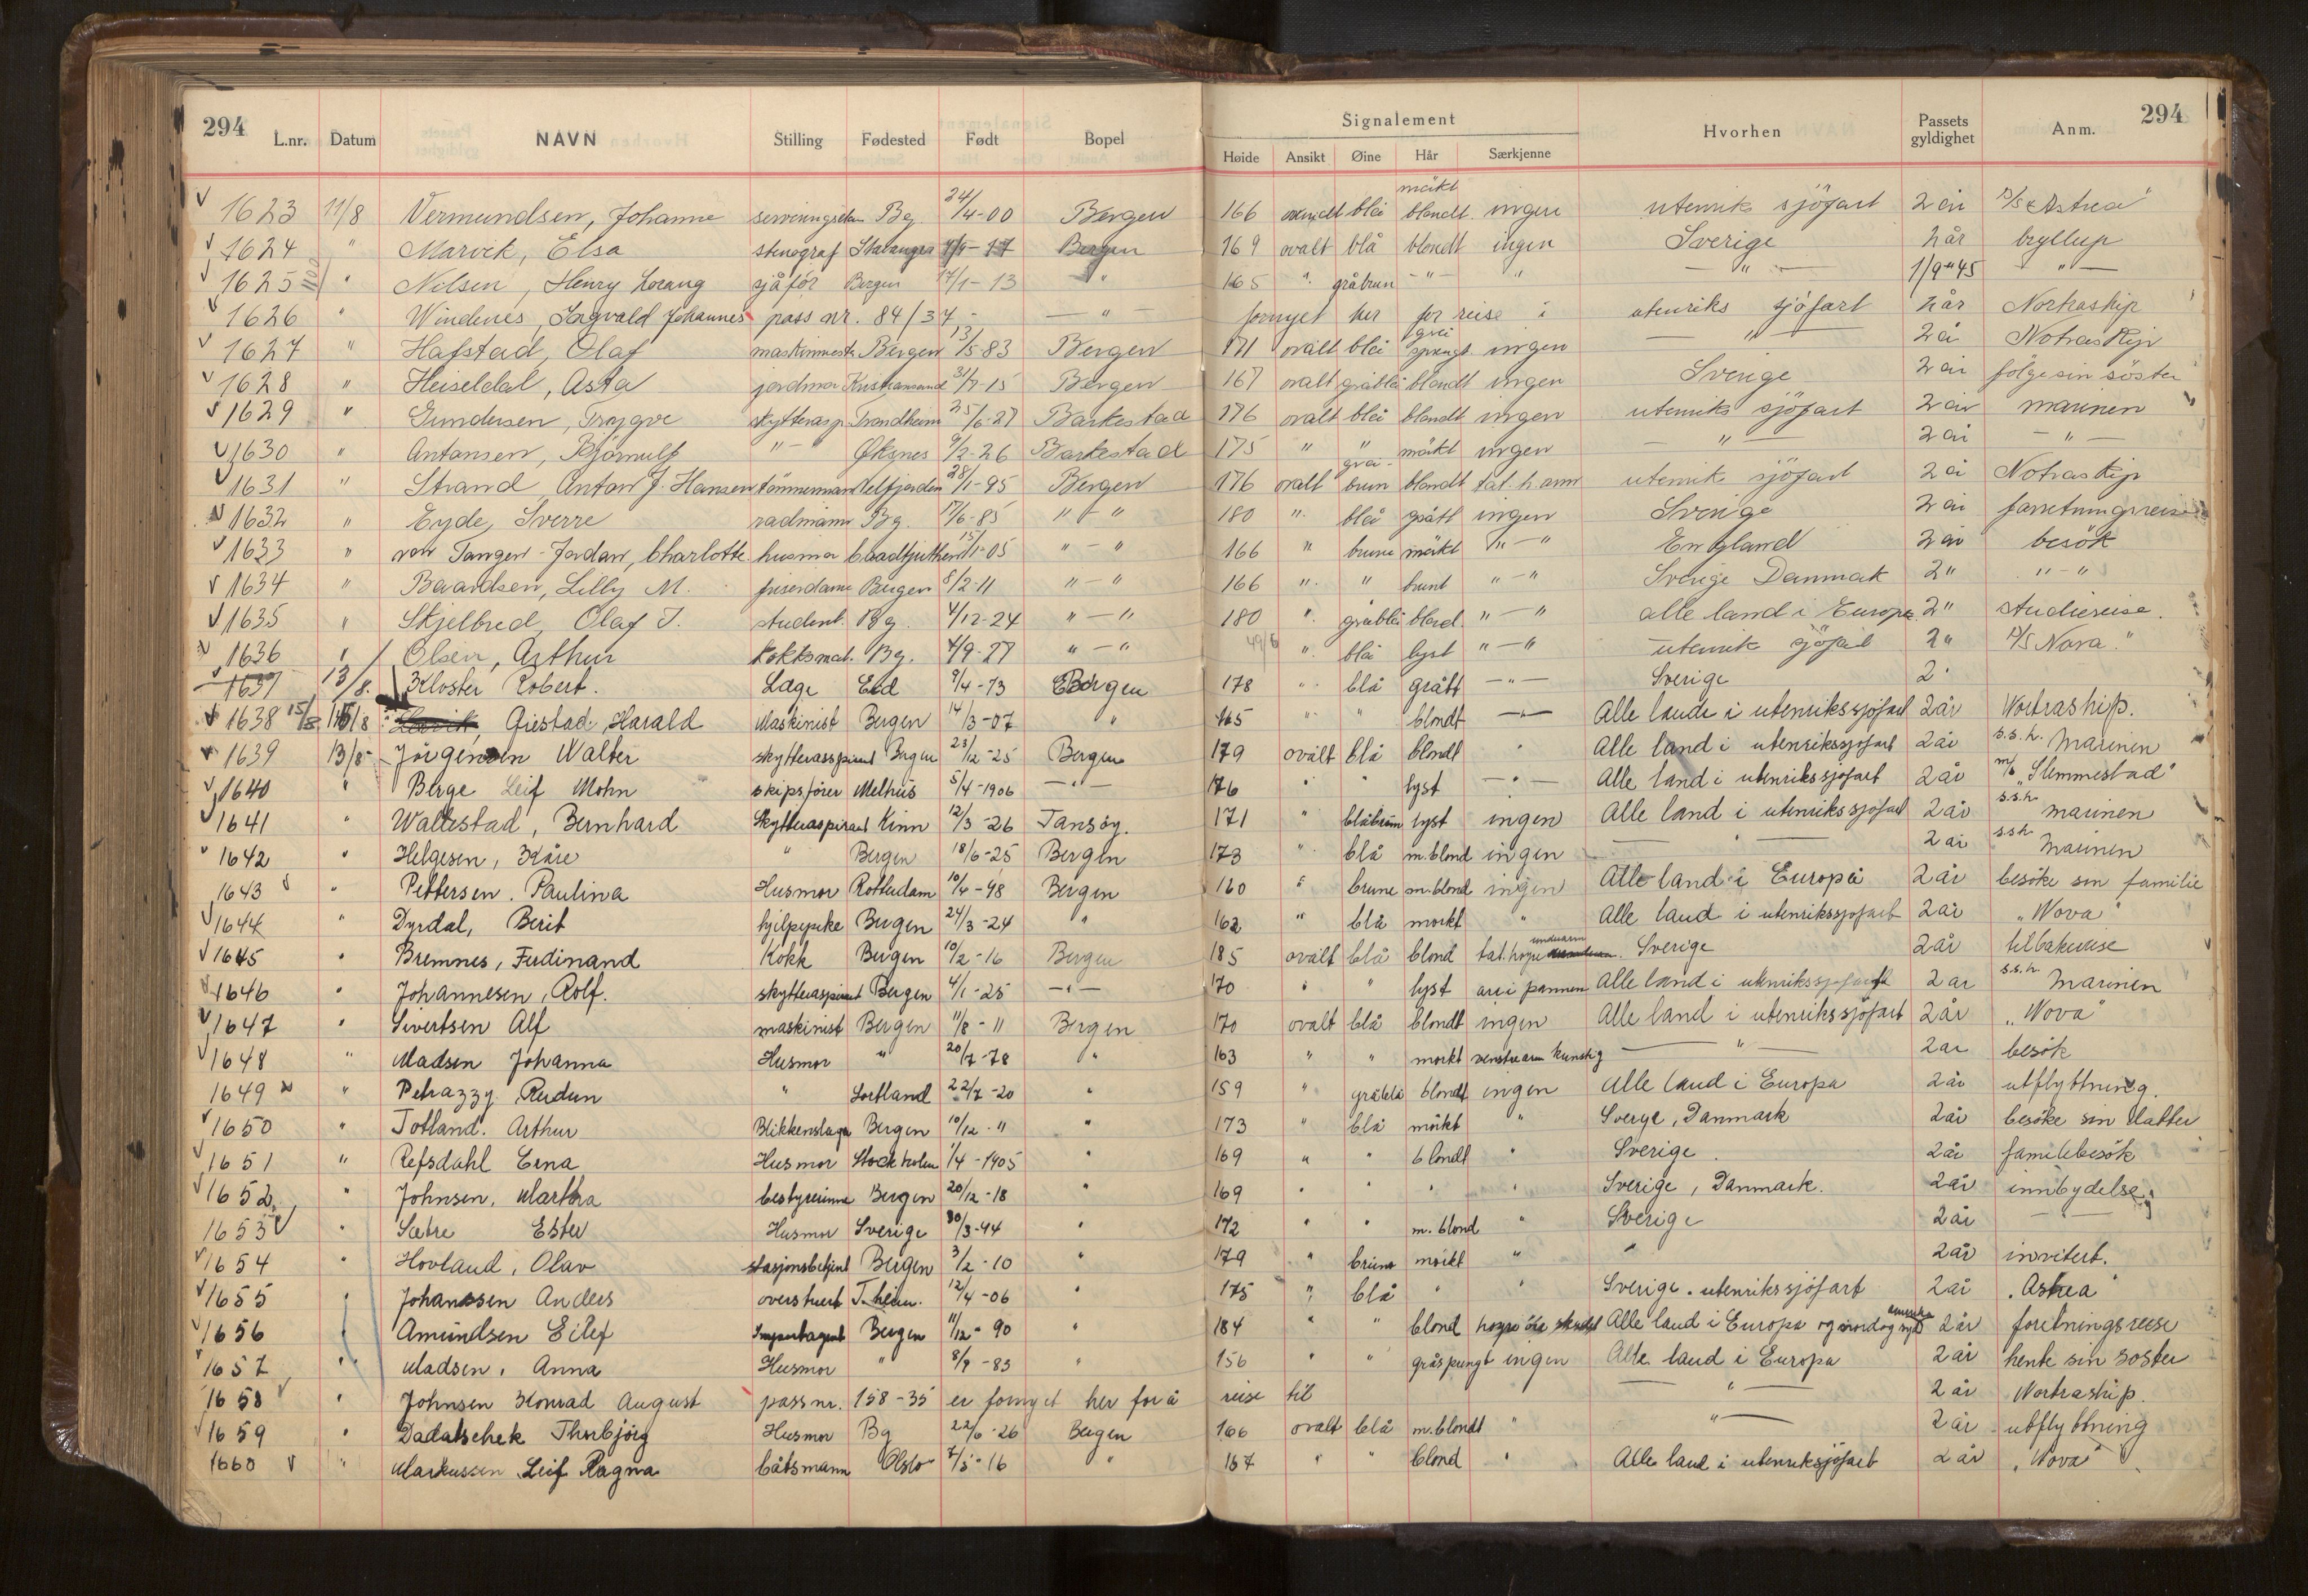 294 L.nr. Datum NAVN Stilling Fødested Født Bopel Signalement Høide Ansikt Øine Hår Særkjenne Hvorhen Passets gyldighet Anm. 294
1623 11/8 Vermundsen, Johanne Bg. 24/4-00 Bergen 166 blå mörkt blondt ingen utenrik sjöfart 2 år D/S "Astrea"
1624 " Marvik, Elsa stenograf Stavanger Bergen 169 ovalt blå blondt ingen Sverige 2 år bryllup
1625 " Nilsen, Henry Lorang sjåför Bergen 17/1-13 " 165 " gråbrun -"- " -"- 1/9-45 -"-
1626 " Windenes, Ingvald Johannes pass nr. 84/37 - -"- fornyet her for reise i utenriks sjöfart 2 år Nortraship
1627 " Hafstad, Olaf maskinmest. Bergen 13/5-83 Bergen 171 ovalt blå grå sprengt ingen -"- 2 å Notraskip
1628 " Heiseldal, Asta jordmor Kristiansand 31/7-15 Bergen 167 ovalt gråblå blondt ingen Sverige 2 år fölge sin söster
1629 " Gundersen, Trygve skytterasp. Trondheim 25/6-27 Barkestad 176 ovalt blå blondt ingen utenriks sjöfart 2 år marinen
1630 " Antonsen, Björnulf "- Øksnes 9/2-26 Barkestad 175 " " mörkt ingen -"- 2 år -"-
1631 " Strand, Anton J. Hansen tömmermann Velfjorden 28/1-95 Bergen 176 ovalt grå-brun blondt tat. h. arm utenrik sjöfart 2 å Notraskip
1632 " Eyde, Sverre radmann Bg. 17/6-85 "-" 180 " blå grått ingen Sverige 2 år forretningsreise
1633 " von Tangen-Jordan, Charlotte husmor 15/1-05 "-" 166 " brune mörkt "-" England 2 år besök
1634 " Baardsen, Lilly M. friserdame Bergen 8/2-11 "-" 166 " " brunt "-" Sverige Danmark 2" "-"
1635 " Skjelbred, Olaf J. student. Bg. 4/12-24 "-" 180 " gråblå blond. "-" alle land i Europa 2" studiereise.
1636 " Olsen, Arthur Kokksmat. Bg. 4/9-27 "-" " blå lyst "-" utenrik sjöfart 2" D/S Nova."
1637 13/8. Kloster Robert. Lege Eid 9/4-73 Bergen 178 " blå grått -"- Sverige 2"
1638 15/8 15/8 Giestad, Harald Maskinist Bergen 14/3-07 " 165 " " blondt -"- Alle lande i utenrikssjöfart 2 år Nortraship.
1639 13/8- Jörgensen Walter skytterasspirant Bergen 23/12-25 Bergen 179 ovalt blå blondt " Alle land i utenrikssjöfart 2 år s.s.h. Marinen
1640 " Berge Leif Mohn skipsförer Melhus 5/4-1906 -"- 176 " " lyst -"- Alle land i utenrikssjöfart 2 år m/s "Slemmestad"
1641 " Wallestad, Bernhard Skytteraspirant Kinn 12/3-26 Tansøy. 171 " blåbrun lyst ingen Alle land i utenrikssjöfart 2 år s.s.h. marinen
1642 " Helgesen, Kåre " Bergen 18/6-25 Bergen 173 " blå m.blond ingen -"- 2 år s.s.h. Marinen
1643 " Pettersen. Paulina Husmor Rotterdam 10/4-98 Bergen 160 " brune m.blond ingen Alle land i Europa 2 år besöke sin familie
1644 " Dyrdal, Berit hjelpepike Bergen 24/3-24 " 162 " blå morkt " Alle land i utenrikssjöfart 2 år "Nova"
1645 " Bremnes, Ferdinand Kokk Bergen 10/2-16 Bergen 185 ovalt blå blond tat. høyre underarm Sverige 2 år tilbakereise
1646 " Johannesen, Rolf. skytteraspirant Bergen 4/1-25 -"- 170 " " lyst arr i pannen Alle land i utenrikssjöfart 2 år s.s.h. Marinen
1647 " Sivertsen Alf maskinist Bergen 11/8-11 Bergen 170 ovalt blå blondt ingen Alle land i utenrikssjöfart 2 år "Nova"
1648 " Madsen Johanna Husmor " 20/7-78 " 163 " " morkt venstre arm kunstig -"- 2 år besök
1649 " Petrazzy Reidun " Sortland 22/7-20 " 159 " gråblå blondt ingen Alle land i Europa 2 år utflyttning.
1650 " Totland. Arthur Blikkenslager Bergen 10/12-11 " 173 " blå mörkt " Sverge, Danmark 2 år besöke sin datter
1651 " Refsdahl Erna Husmor Stockholm 1/4-1905 " 169 " " blondt " Sverige. 2 år familiebesök
1652 " Johnsen, Martha bestyrerinne Bergen 20/12-18 " 169 " " " " Sverige, Danmark. 2 år innbydelse
1653 " Sætre Ester Husmor Sverige 30/3-44 " 172 " " m. blond " Sverige 2 år -"-
1654 " Hovland, Olav stasjonsbetjent Bergen 3/2-10 " 179 " brune mörkt " " 2 år invitert.
1655 " Johanssen Anders overstuert T.heim. 12/4-06 " 175 " blå " " Sverige. utenrikssjöfart 2 år "Astrea"
1656 " Amundsen Eilef Bergen 11/12-90 " 184 " " blond Alle land i Europa og nord og syd amerika 2 år foretningsreise
1657 " Madsen, Anna Husmor " 8/9-83 " 156 " " gråspengt ingen Alle land i Europa 2 år hente sin soster
1658 " Johnsen Konrad August pass nr. 158-35 er fornyet her for å reise til -"- 2 år Nortraship.
1659 " Dadatschek Thorbjörg Husmor Bg 22/6-26 Bergen 166 ovalt blå m.blondt " -"- 2 år utflyttning
1660 " Markussen Leif Ragna båtsmann Oslo 7/5-16 " 167 " " blond " Alle land i utenriksjöfart 2 år "Nova"